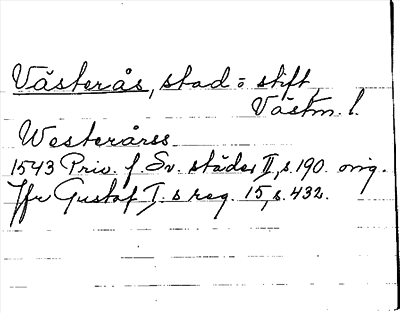 Västerås, stad o stift,
Västm. l.
Westerårss
1543 Priv. f. Sv. städer II, s. 190. orig.
Jfr Gustaf I. s reg. 15, s. 432.